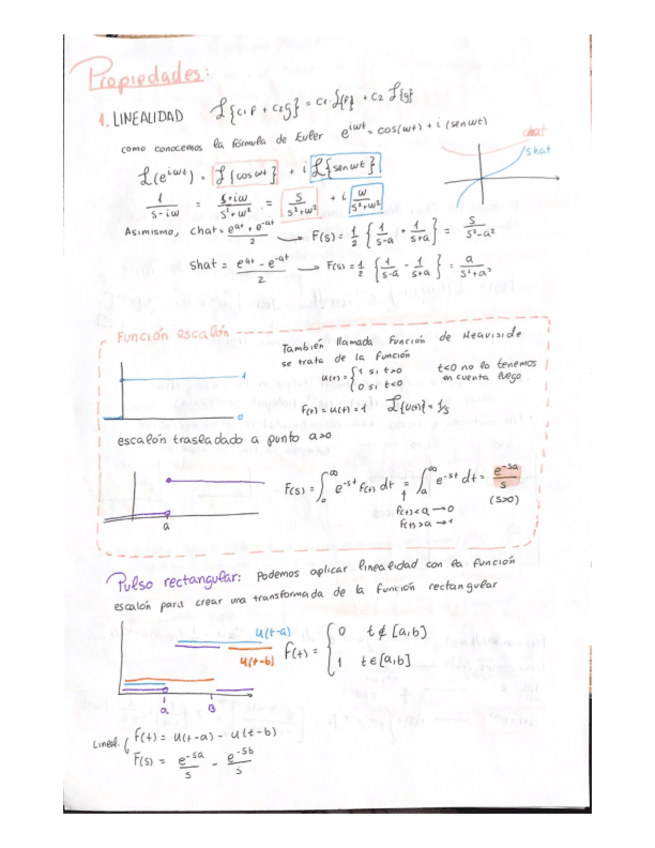 Propiedades:
1. LINEALIDAD ℒ{c₁f + c₂g} = c₁·ℒ{f} + c₂ ℒ{g}
como conocemos la fórmula de Euler e^{iwt} = cos(wt) + i (senwt)
chat
shat
ℒ(e^{iwt}) = ℒ{cos wt} + i ℒ{sen wt}
1/(s-iw) = (s+iw)/(s²+w²) = s/(s²+w²) + i w/(s²+w²)
Asimismo, chat = (e^{at} + e^{-at})/2 → F(s) = 1/2 {1/(s-a) + 1/(s+a)} = s/(s²-a²)
shat = (e^{at} - e^{-at})/2 → F(s) = 1/2 {1/(s-a) - 1/(s+a)} = a/(s²+a²)
Función escalón
También llamada función de Heaviside
se trata de la función
u(t) = {1 si t>0
0 si t<0
t<0 no lo tenemos
en cuenta luego
1
0
F(t) = u(t) = 1 ℒ{u(t)} = 1/s
escalón trasladado a punto a>0
F(s) = ∫₀^∞ e^{-st} f(t) dt = ∫ₐ^∞ e^{-st} dt = e^{-sa}/s
(s>0)
f(t)<a → 0
f(t)>a → 1
a
Pulso rectangular: Podemos aplicar linealidad con la función
escalón para crear una transformada de la función rectangular
u(t-a)
u(t-b)
f(t) = {0 t∉[a,b]
1 t∈[a,b]
a B
Lineal. { f(t) = u(t-a) - u(t-b)
F(s) = e^{-sa}/s - e^{-sb}/s